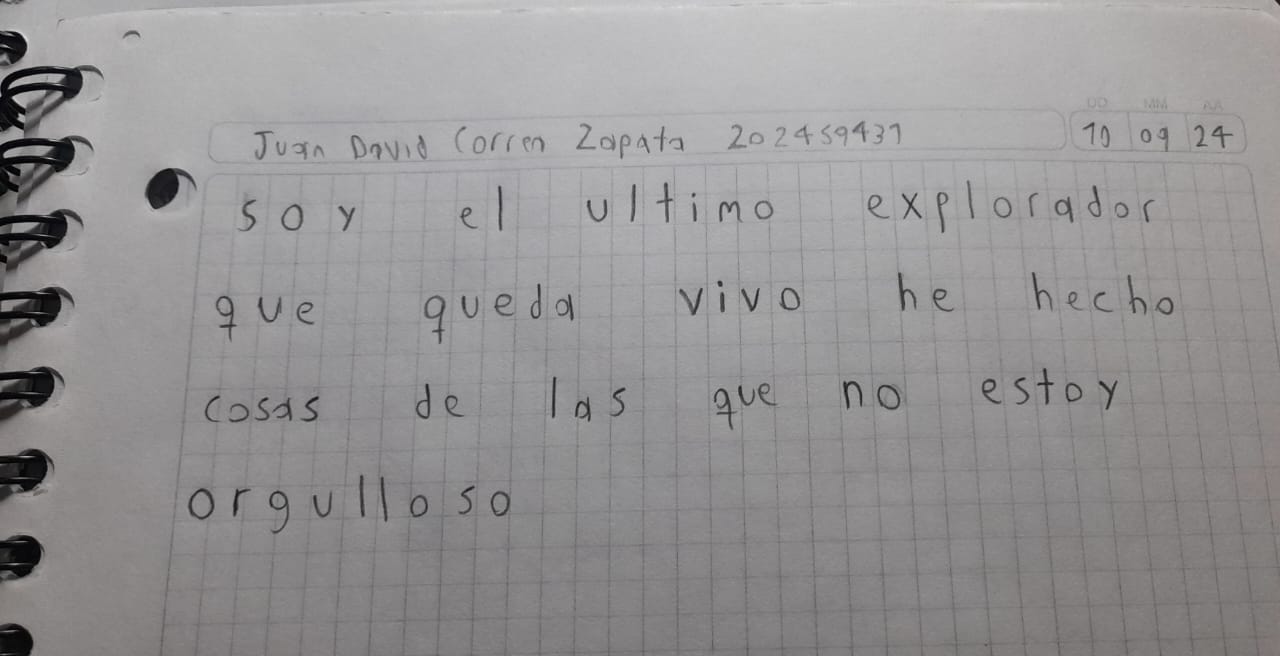 DD MM AA
Juan David Correa Zapata 202459431 10 09 24
soy el ultimo explorador
que queda vivo he hecho
cosas de las que no estoy
orgulloso